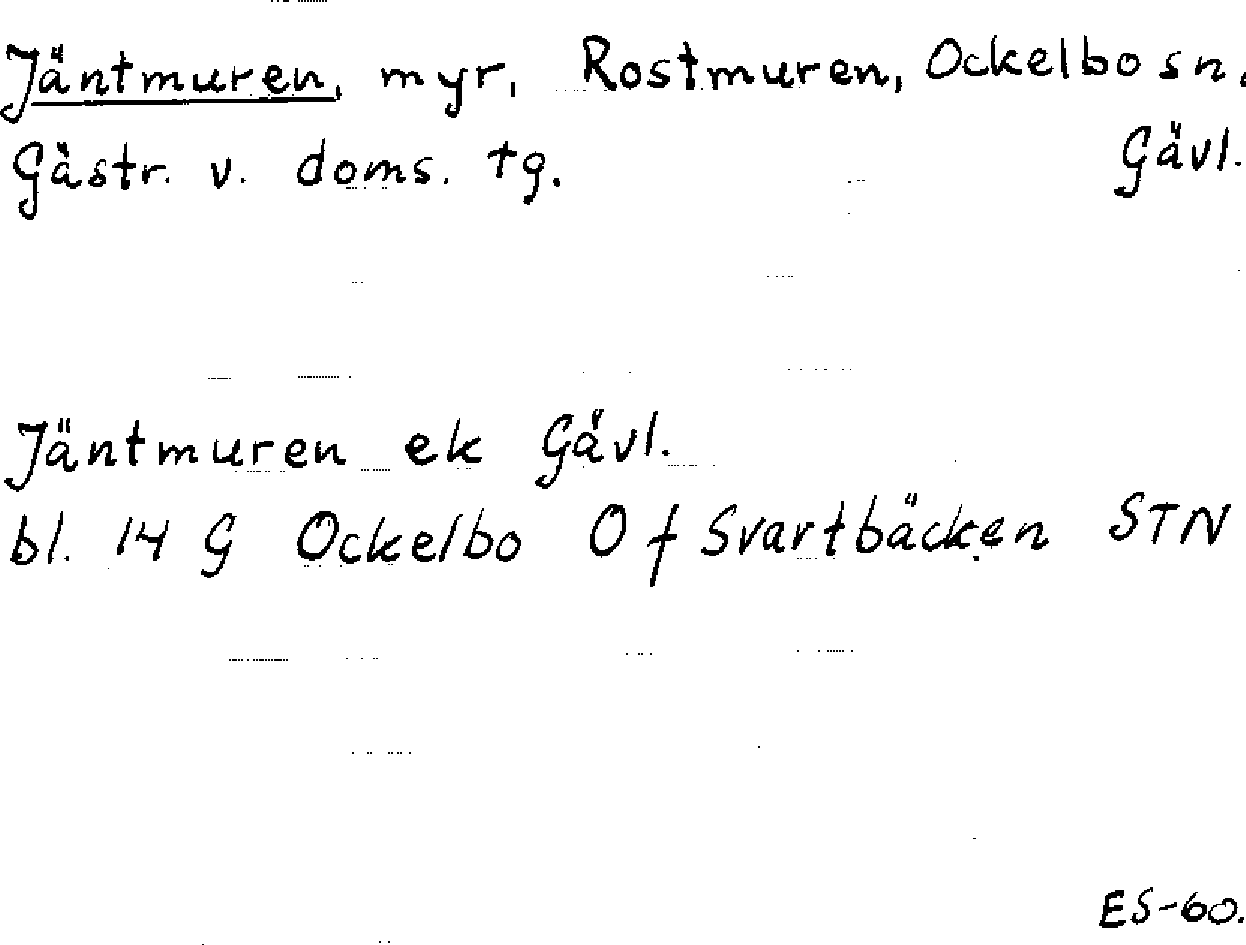 Jäntmuren, myr, Rostmuren, Ockelbo sn,
Gästr. v. doms. tg. Gävl.
Jäntmuren ek Gävl.
bl. 14 G Ockelbo O f Svartbäcken STN
ES-60.